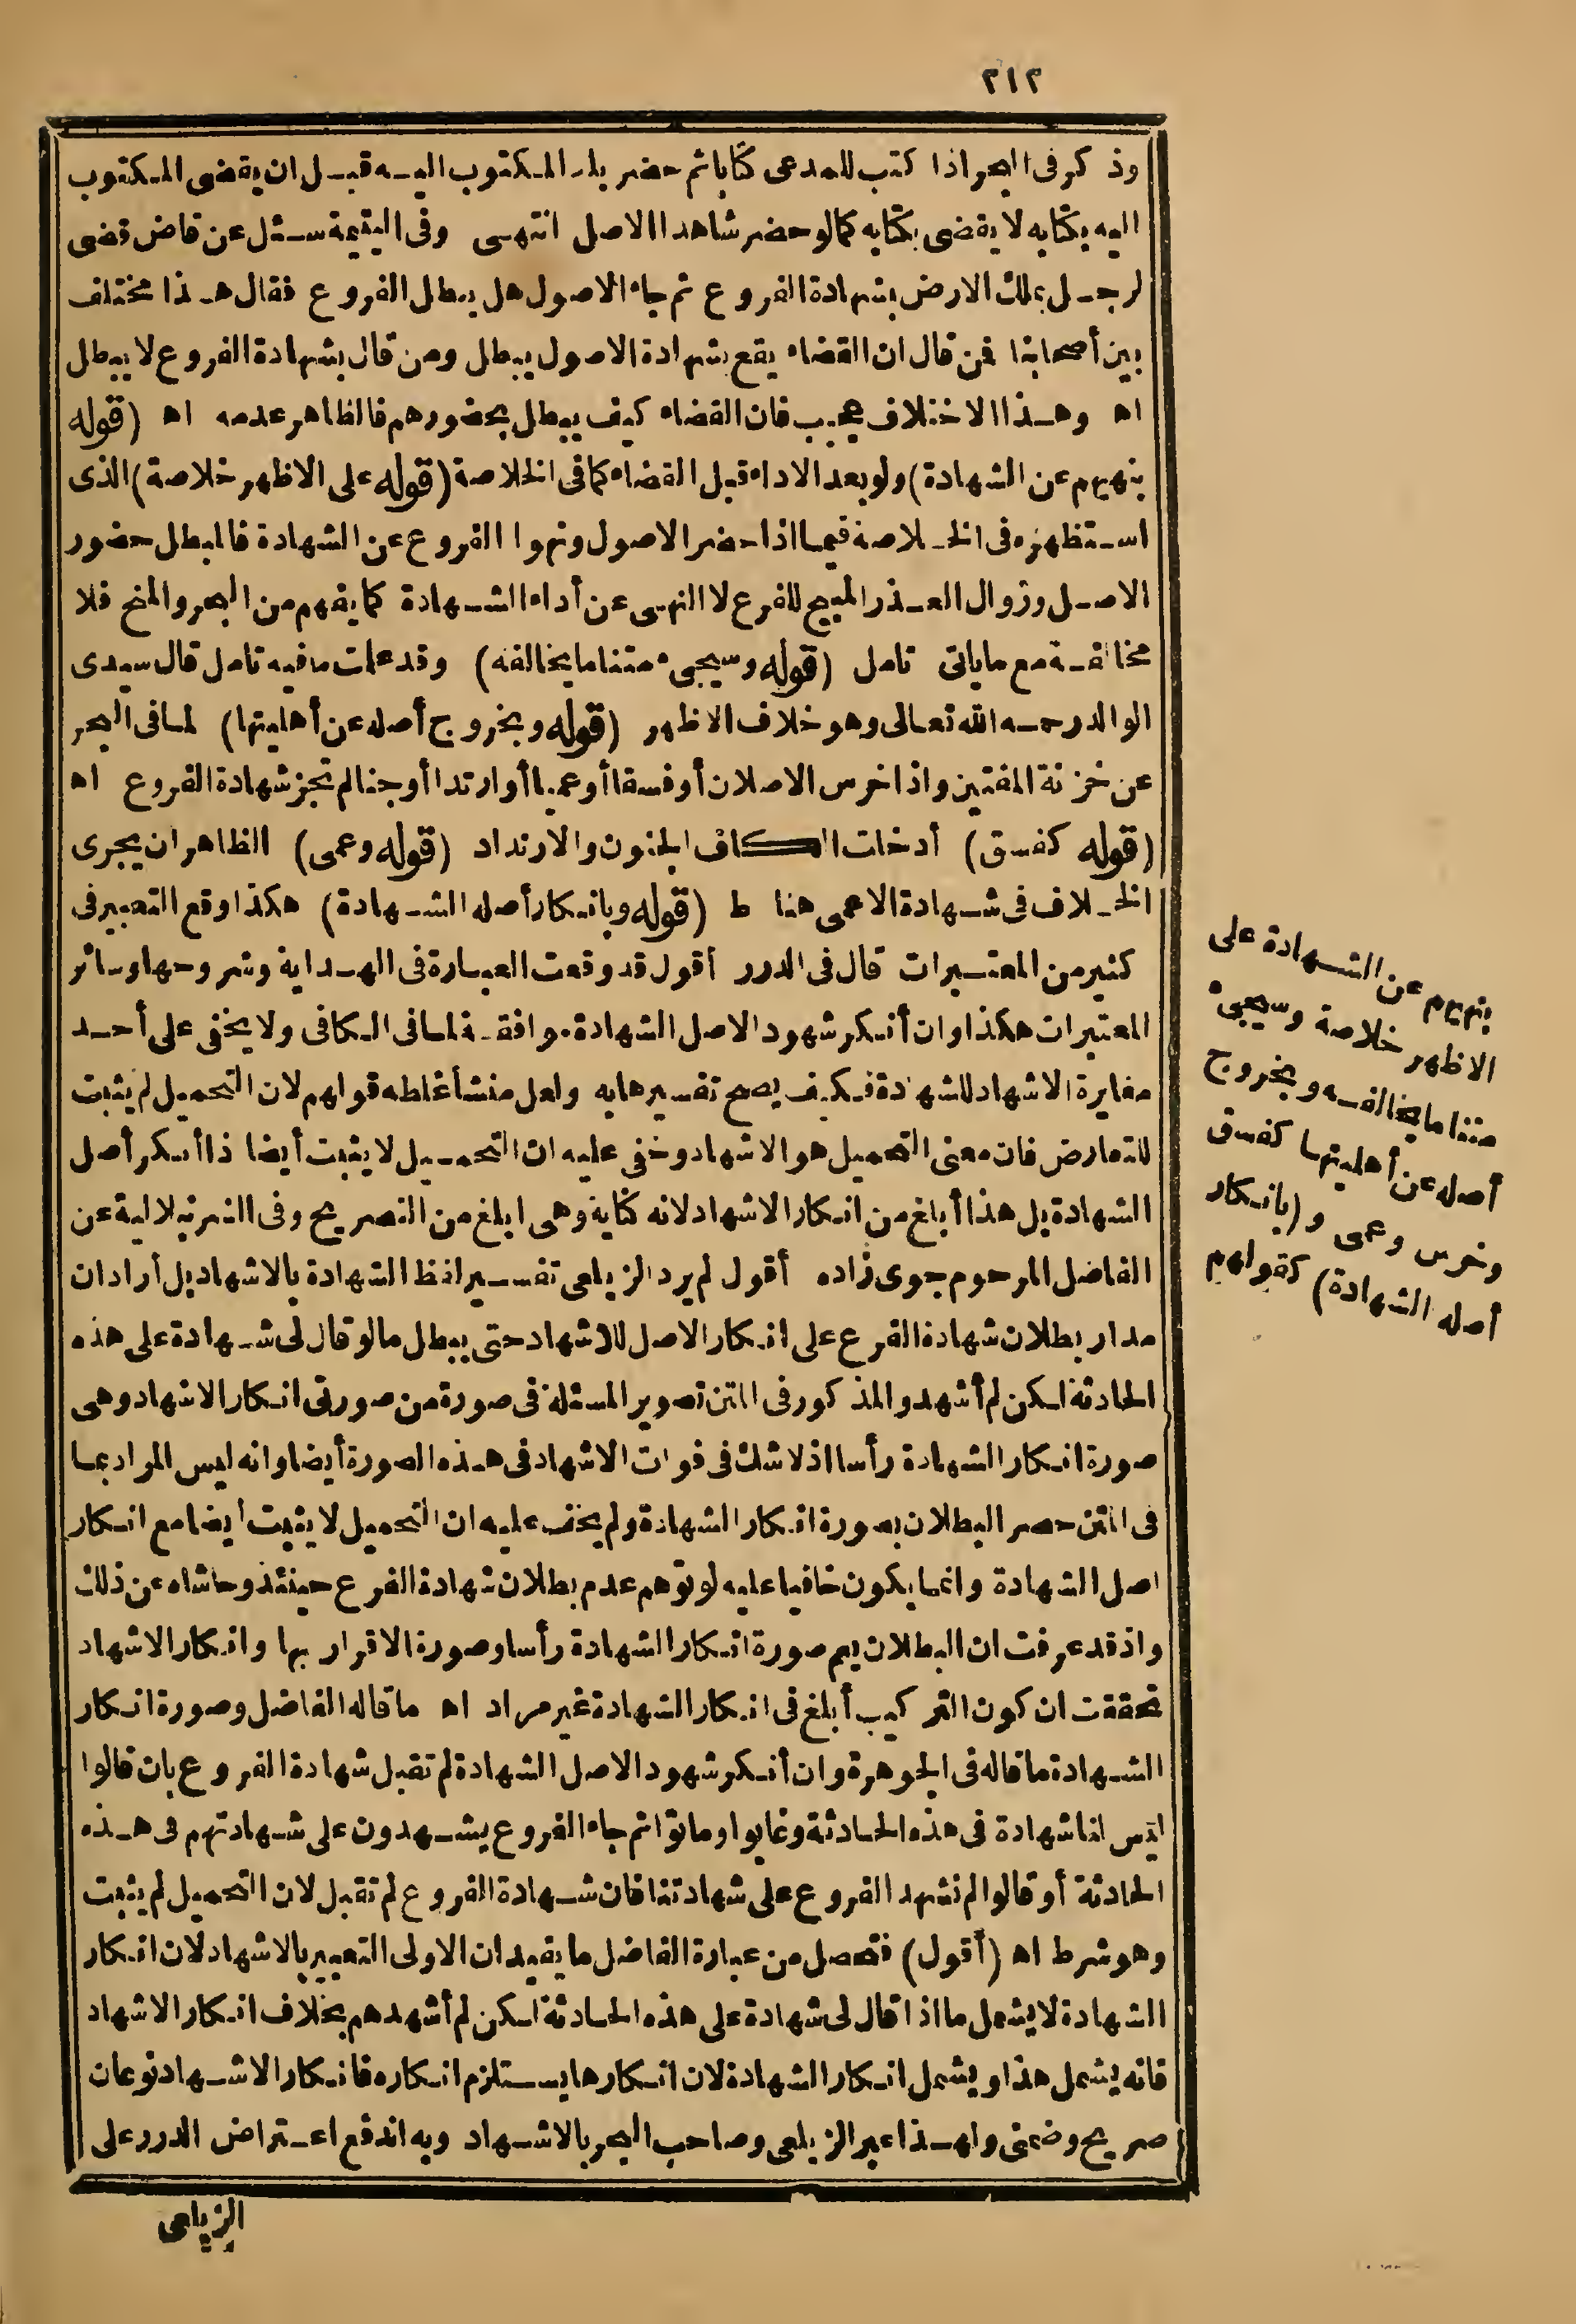 ٢١٢
وذكر فى البحر اذا كتب للمدعى كتابا ثم حضر بلد المكتوب اليه قبل ان يقضى المكتوب
اليه بكتابه لا يقضى بكتابه كما لو حضر شاهدا الاصل انتهى وفى اليتيمة سئل عن قاض قضى
لرجل بملك الارض بشهادة الفروع ثم جاء الاصول هل يبطل الفروع فقال هذا مختلف
بين أصحابنا فمن قال ان القضاء يقع بشهادة الاصول يبطل ومن قال بشهادة الفروع لا يبطل
اه وهذا الاختلاف عجيب فان القضاء كيف يبطل بحضورهم فالظاهر عدمه اه (قوله
بنهيهم عن الشهادة) ولو بعد الاداء قبل القضاء كما فى الخلاصة (قوله على الاظهر خلاصة) الذى
استظهره فى الخلاصة فيما اذا حضر الاصول ونهوا الفروع عن الشهادة فالمبطل حضور
الاصل وزوال العذر المبيح للفرع لا النهى عن أداء الشهادة كما يفهم من البحر والمنح فلا
مخالفة مع ما ياتى تامل (قوله وسيجىء متنا ما يخالفه) وقد علمت ما فيه تامل قال سيدى
الوالد رحمه الله تعالى وهو خلاف الاظهر (قوله وبخروج أصله عن أهليتها) لما فى البحر
عن خزنة المفتين واذا خرس الاصلان أو فسقا أو عميا أو ارتدا أو جنا لم تجز شهادة الفروع اه
(قوله كفسق) أدخلت الكاف الجنون والارتداد (قوله وعمى) الظاهر ان يجرى
الخلاف فى شهادة الاعمى هنا ط (قوله وبانكار أصله الشهادة) هكذا وقع التعبير فى
كثير من المعتبرات قال فى الدرر أقول قد وقعت العبارة فى الهداية وشروحها وسائر
المعتبرات هكذا وان أنكر شهود الاصل الشهادة موافقة لما فى الكافى ولا يخفى على أحد
مغايرة الاشهاد للشهادة فكيف يصح تفسيرها به ولعل منشأ غلطه قولهم لان التحميل لم يثبت
للتعارض فان معنى التحميل هو الاشهاد وخفى عليه ان التحميل لا يثبت أيضا اذا أنكر أصل
الشهادة بل هذا أبلغ من انكار الاشهاد لانه كناية وهى ابلغ من التصريح وفى الشرنبلالية عن
الفاضل المرحوم جوى زاده أقول لم يرد الزيلعى تفسير لفظ الشهادة بالاشهاد بل أراد ان
مدار بطلان شهادة الفرع على انكار الاصل للاشهاد حتى يبطل ما لو قال لى شهادة على هذه
الحادثة لكن لم أشهد والمذكور فى المتن تصوير المسئلة فى صورة من صورتى انكار الاشهاد وهى
صورة انكار الشهادة رأسا اذ لا شك فى فوات الاشهاد فى هذه الصورة أيضا وانه ليس المراد بما
فى المتن حصر البطلان بصورة انكار الشهادة ولم يخف عليه ان التحميل لا يثبت أيضا مع انكار
اصل الشهادة وانما يكون خافيا عليه لو توهم عدم بطلان شهادة الفرع حينئذ وحاشاه عن ذلك
واذ قد عرفت ان البطلان يعم صورة انكار الشهادة رأسا وصورة الاقرار بها وانكار الاشهاد
تحققت ان كون التركيب أبلغ فى انكار الشهادة غير مراد اه ما قاله الفاضل وصورة انكار
الشهادة ما قاله فى الجوهرة وان أنكر شهود الاصل الشهادة لم تقبل شهادة الفروع بان قالوا
ليس لنا شهادة فى هذه الحادثة وغابوا وماتوا ثم جاء الفروع يشهدون على شهادتهم فى هذه
الحادثة أو قالوا لم نشهد الفروع على شهادتنا فان شهادة الفروع لم تقبل لان التحميل لم يثبت
وهو شرط اه (أقول) فتحصل من عبارة الفاضل ما يفيد ان الاولى التعبير بالاشهاد لان انكار
الشهادة لا يشمل ما اذا قال لى شهادة على هذه الحادثة لكن لم أشهدهم بخلاف انكار الاشهاد
فانه يشمل هذا ويشمل انكار الشهادة لان انكارها يستلزم انكاره فانكار الاشهاد نوعان
صريح وضمنى ولهذا عبر الزيلعى وصاحب البحر بالاشهاد وبه اندفع اعتراض الدرر على
الزيلعى
بنهيهم عن الشهادة على
الاظهر خلاصة وسيجىء
متنا ما يخالفه وبخروج
أصله عن أهليتها كفسق
وخرس وعمى و(بانكار
أصله الشهادة) كقولهم